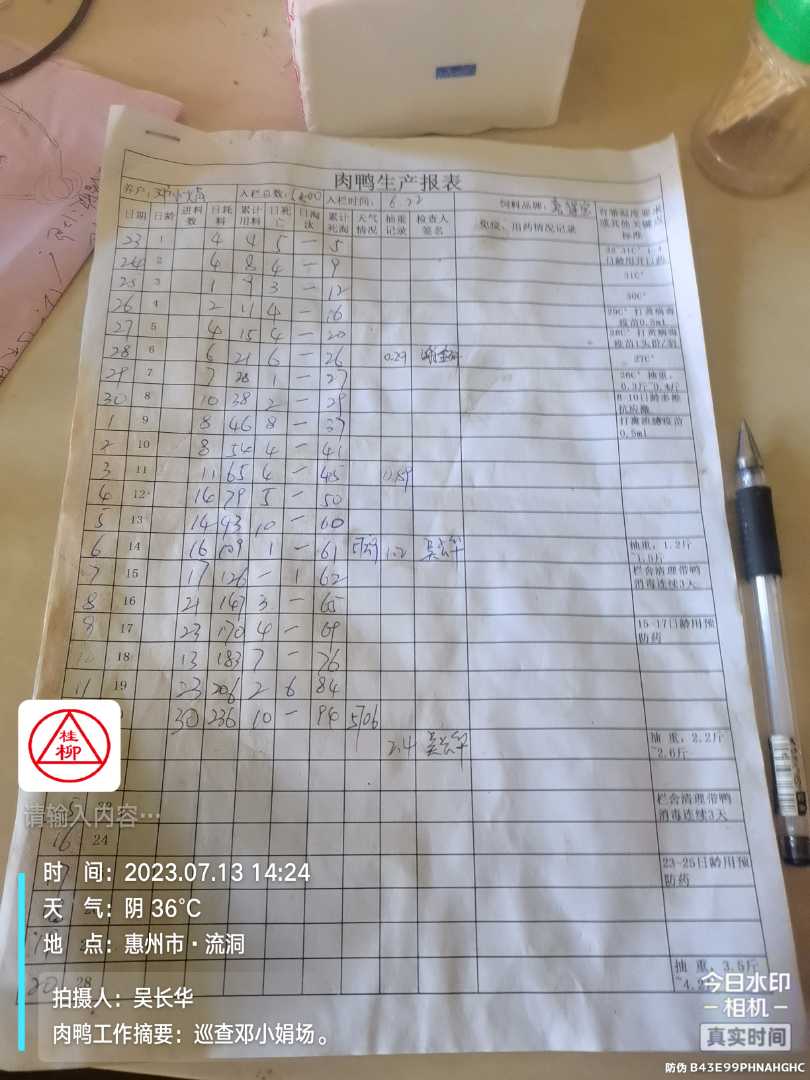 肉鸭生产报表
养户: 邓小娟 入栏总数: 5400 入栏时间: 6.22 饲料品牌:
日期 日龄 进料数 日耗料 累计用料 日死亡 日淘汰 累计死淘 天气情况 抽重记录 检查人签名 免疫、用药情况记录 育雏温度要求或其他关键点标准
23 1 4 4 5 一 5
24 2 4 8 4 一 9 31C°
25 3 1 9 3 一 12 30C°
26 4 2 11 4 一 16 29C° 打黄病毒疫苗0.5ml
27 5 4 15 4 一 20 28C° 打黄病毒疫苗1头份/羽
28 6 6 21 6 一 26 0.29 27C°
29 7 7 28 1 一 27 26C° 抽重:0.3斤~0.4斤
30 8 10 38 2 一 29 8-10日龄多维抗应激
1 9 8 46 8 一 37 打禽流感疫苗0.5ml
2 10 8 54 4 一 41
3 11 11 65 4 一 45 0.89
4 12 14 79 5 一 50
5 13 14 93 10 一 60
6 14 16 109 1 一 61 1.2 吴长华 抽重:1.2斤~1.5斤
7 15 17 126 一 1 62 栏舍清理带鸭消毒连续3天
8 16 21 147 3 一 65
9 17 23 170 4 一 69 15-17日龄用预防药
18 13 183 7 一 76
11 19 23 206 2 6 84
30 236 10 一 94 5706
2.4 吴长华 抽重:2.2斤~2.6斤
栏舍清理带鸭消毒连续3天
16 24
23-25日龄用预防药
20 28 抽重:3.5斤
桂柳
请输入内容…
时 间：2023.07.13 14:24
天 气：阴 36℃
地 点：惠州市·流洞
拍摄人：吴长华
肉鸭工作摘要：巡查邓小娟场。
今日水印
-相机-
真实时间
防伪 B43E99PHNAHGHC